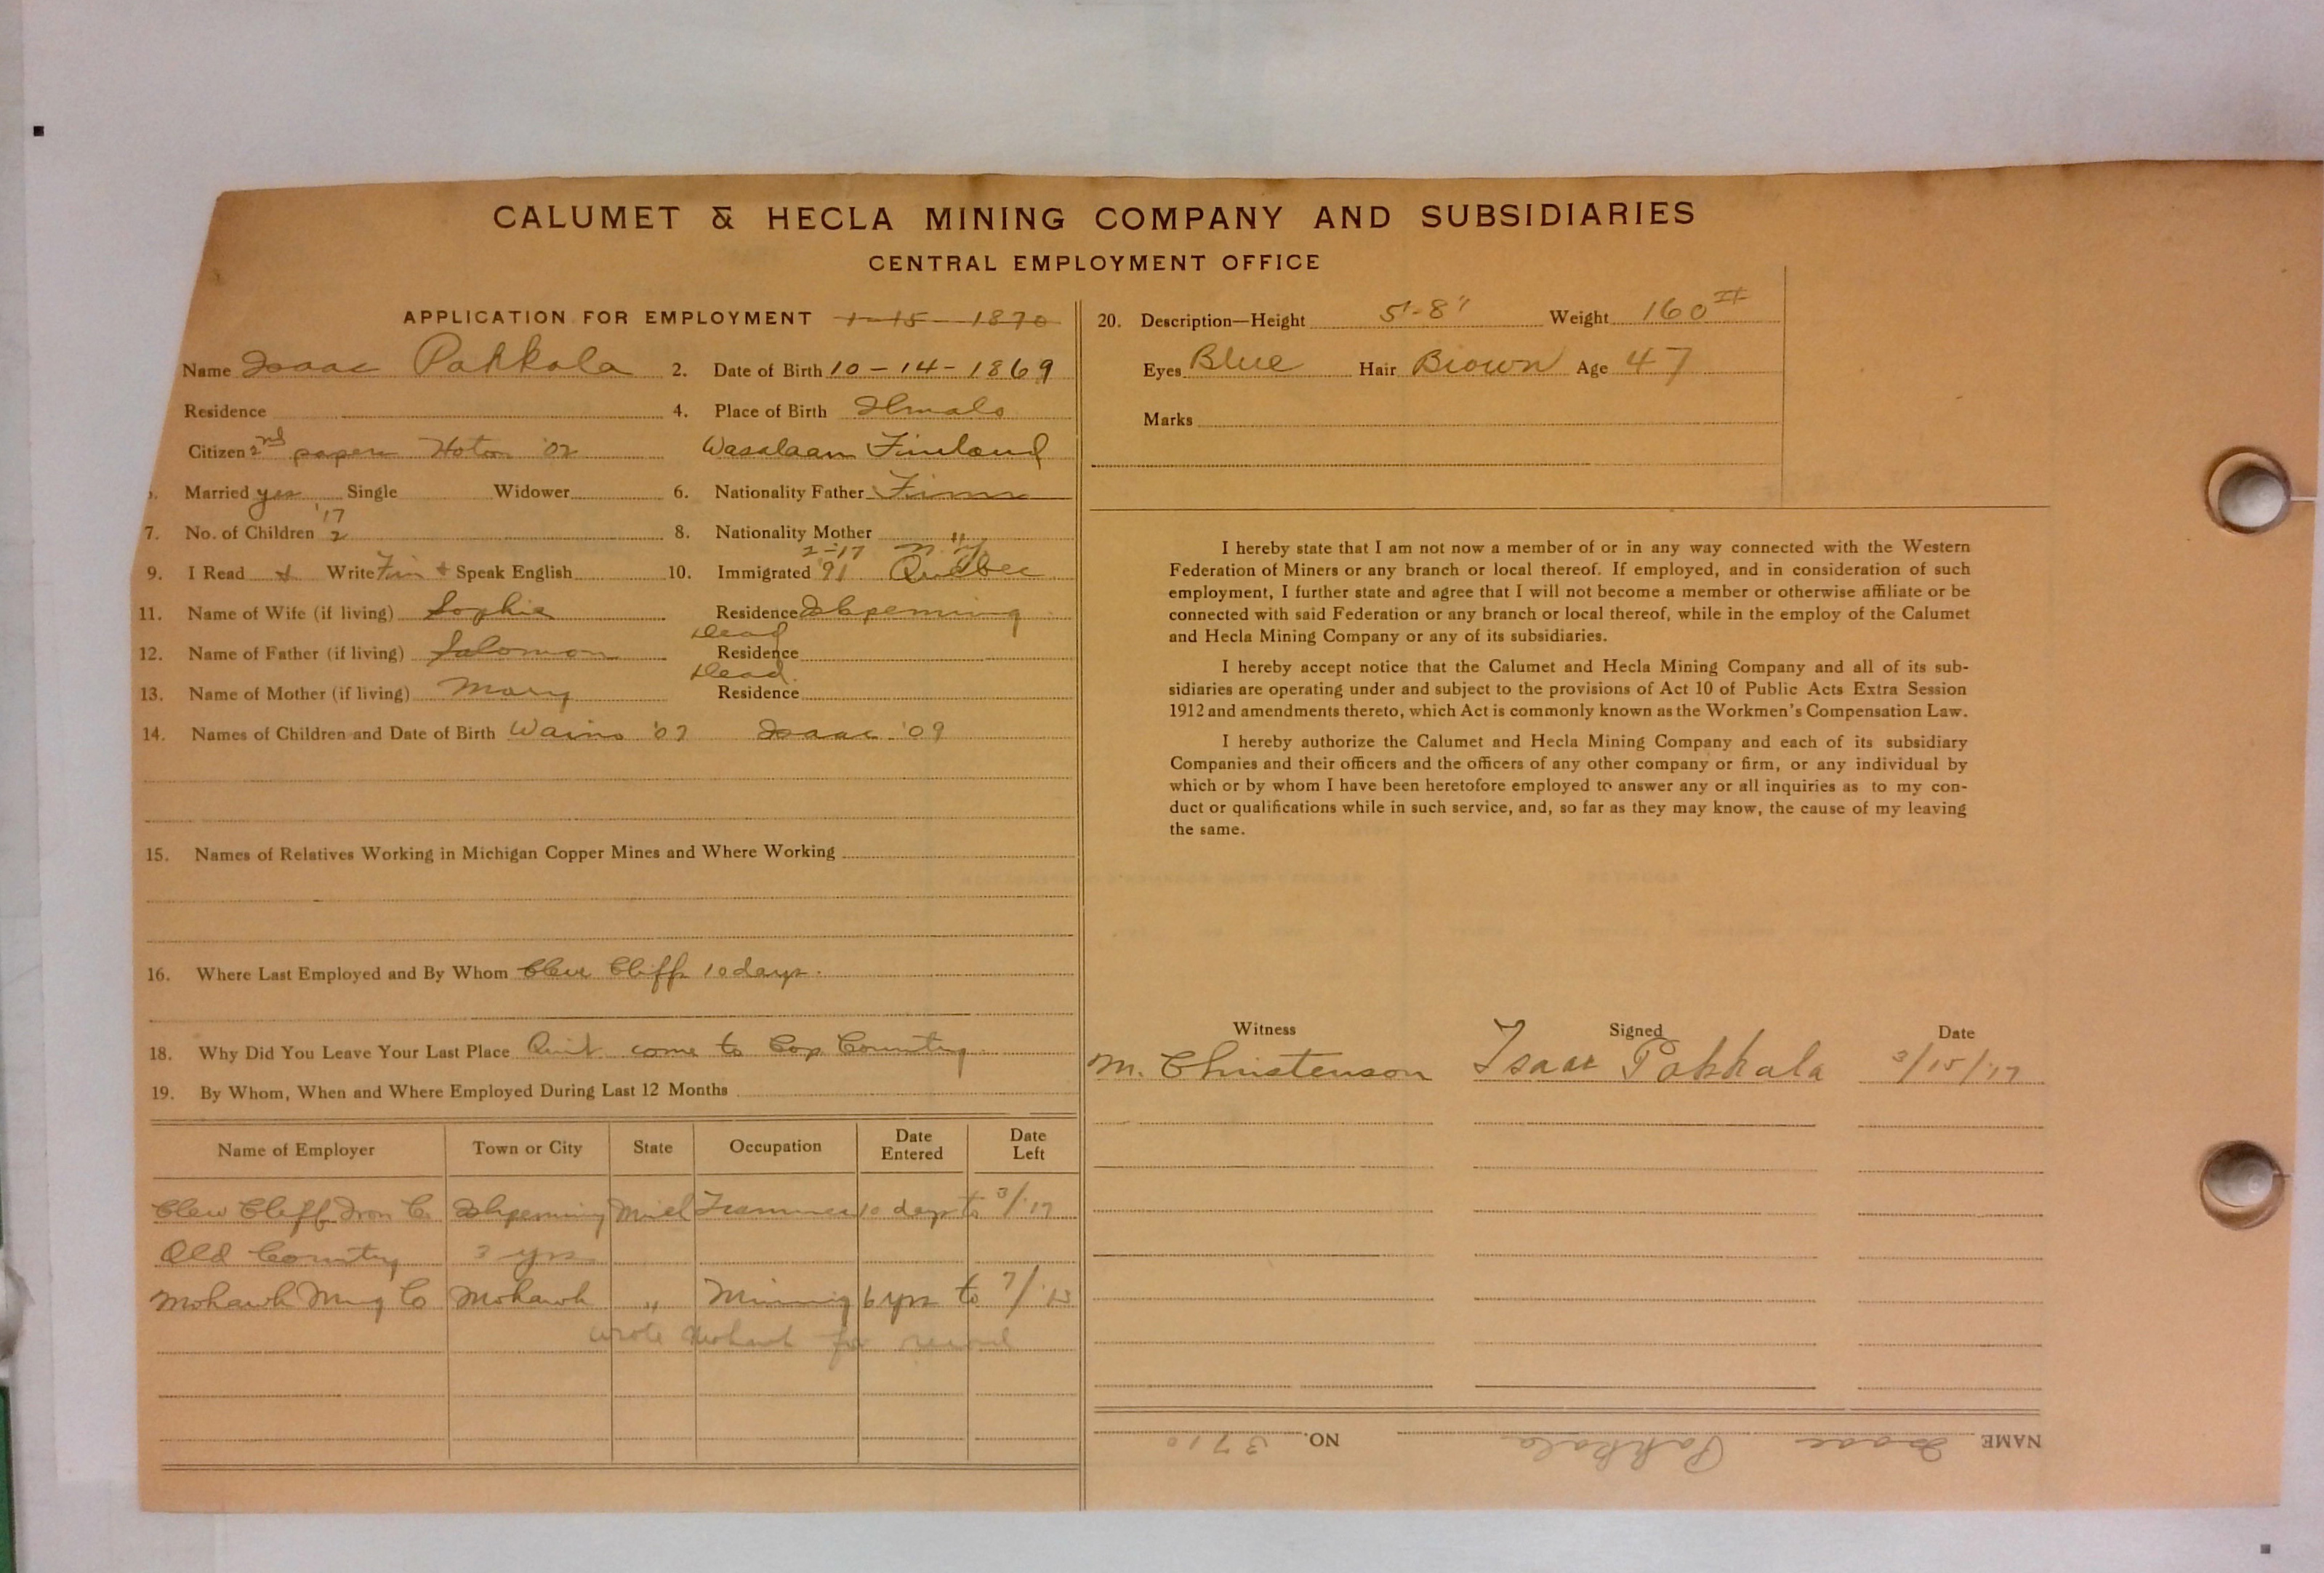 CALUMET & HECLA MINING COMPANY AND SUBSIDIARIES
CENTRAL EMPLOYMENT OFFICE
APPLICATION FOR EMPLOYMENT 1-15-1870
Name Isaac Pahkala 2. Date of Birth 10-14-1869
Residence 4. Place of Birth Ilmalo
Citizen 2nd papers Hoton '02 Wasalaan Finland
Married yes Single Widower 6. Nationality Father Finn
7. No. of Children '17 2 8. Nationality Mother "
9. I Read & Write Fin + Speak English 10. Immigrated '91 Quebec 2-'17 N.Y.
11. Name of Wife (if living) Sophia Residence Ishpeming
12. Name of Father (if living) Salomon Residence Dead
13. Name of Mother (if living) Mary Residence Dead.
14. Names of Children and Date of Birth Waino '07 Isaac '09
15. Names of Relatives Working in Michigan Copper Mines and Where Working
16. Where Last Employed and By Whom Clev Cliffs 10 days.
18. Why Did You Leave Your Last Place Quit come to Cop Country
19. By Whom, When and Where Employed During Last 12 Months
Name of Employer Town or City State Occupation Date Entered Date Left
Clev Cliff Iron C. Ishpeming Mich Trammer 10 days to 3/'17
Old Country 3 yrs
Mohawk Mng C Mohawk " Mining 6 yrs to 7/'13
wrote Mohawk for record
20. Description—Height 5'-8" Weight 160#
Eyes Blue Hair Brown Age 47
Marks
I hereby state that I am not now a member of or in any way connected with the Western
Federation of Miners or any branch or local thereof. If employed, and in consideration of such
employment, I further state and agree that I will not become a member or otherwise affiliate or be
connected with said Federation or any branch or local thereof, while in the employ of the Calumet
and Hecla Mining Company or any of its subsidiaries.
I hereby accept notice that the Calumet and Hecla Mining Company and all of its sub-
sidiaries are operating under and subject to the provisions of Act 10 of Public Acts Extra Session
1912 and amendments thereto, which Act is commonly known as the Workmen's Compensation Law.
I hereby authorize the Calumet and Hecla Mining Company and each of its subsidiary
Companies and their officers and the officers of any other company or firm, or any individual by
which or by whom I have been heretofore employed to answer any or all inquiries as to my con-
duct or qualifications while in such service, and, so far as they may know, the cause of my leaving
the same.
Witness Signed Date
M. Christenson Isaac Pahkala 3/15/'17
NAME Isaac Pahkala NO. 3710